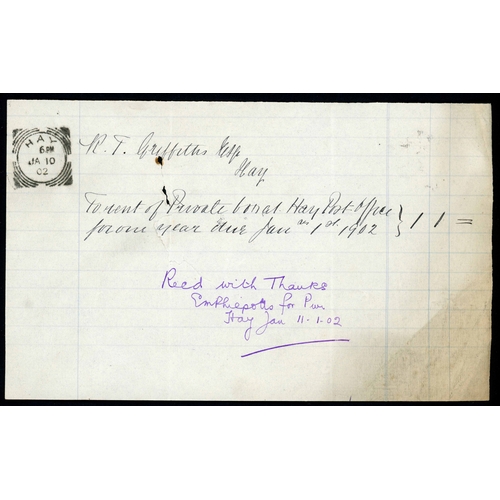 HAY
6PM
JA 10
02
R. T. Griffiths Esq
Hay
To rent of Private box at Hay Post Office } 1 1 =
for one year due Janry 1st 1902
Recd with Thanks
for P
Hay Jan 11-1-02